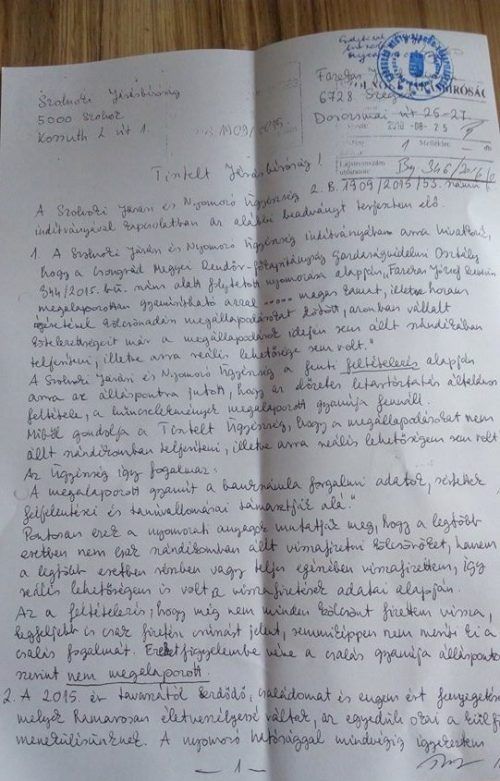 Szolnoki Járásbíróság
5000 Szolnok
Kossuth L. út 1.
6728 Szeged
Dorozsmai út 25-27
BÍRÓSÁG
1 Melléklet
Lajstromszám
Tisztelt Járásbíróság!
A Szolnoki Járási és Nyomozó Ügyészség 2. B. 1909/2015/53. számú
indítványával kapcsolatban az alábbi beadványt terjesztem elő.
1. A Szolnoki Járási és Nyomozó Ügyészség indítványában arra hivatkozik,
hogy a Csongrád Megyei Rendőr-főkapitányság Gazdaságvédelmi Osztály
344/2015. bü. szám alatt folytatott nyomozása alapján, "Fazekas József
megalapozottan gyanúsítható azzal ..... magas kamat, illetve hozam
kölcsönadási megállapodásokat kötött, azonban vállalt
kötelezettségeit már a megállapodások idején sem állt szándékában
teljesíteni, illetve arra reális lehetősége sem volt."
A Szolnoki Járási és Nyomozó Ügyészség a fenti feltételezés alapján
arra az álláspontra jutott, hogy az előzetes letartóztatás általános
feltétele, a bűncselekmények megalapozott gyanúja fennáll.
Miből gondolja a Tisztelt Ügyészség, hogy a megállapodásokat nem
állt szándékomban teljesíteni, illetve arra reális lehetőségem sem volt.
Az Ügyészség így fogalmaz:
"A megalapozott gyanút a bankszámla forgalmi adatok, sértettek
feljelentései és tanúvallomásai támasztják alá."
Pontosan ezek a nyomozati anyagok mutatják meg, hogy a legtöbb
esetben nem csak szándékomban állt visszafizetni kölcsönöket, hanem
a legtöbb esetben részben vagy teljes egészében visszafizettem, így
reális lehetőségem is volt a visszafizetések adatai alapján.
Az a feltételezés, hogy még nem minden kölcsönt fizettem vissza,
legfeljebb is csak fizetési csúszást jelent, semmiképpen nem meríti ki a
csalás fogalmát. Ezeket figyelembe véve a csalás gyanúja álláspontom
szerint nem megalapozott.
2. A 2015. év tavaszától kezdődő, családomat és engem ért fenyegetések
melyek hamarosan életveszélyessé váltak, az egyedüli okai a külföldi
menekülésünknek. A nyomozó hatósággal mindvégig igyekeztem
- 1 -